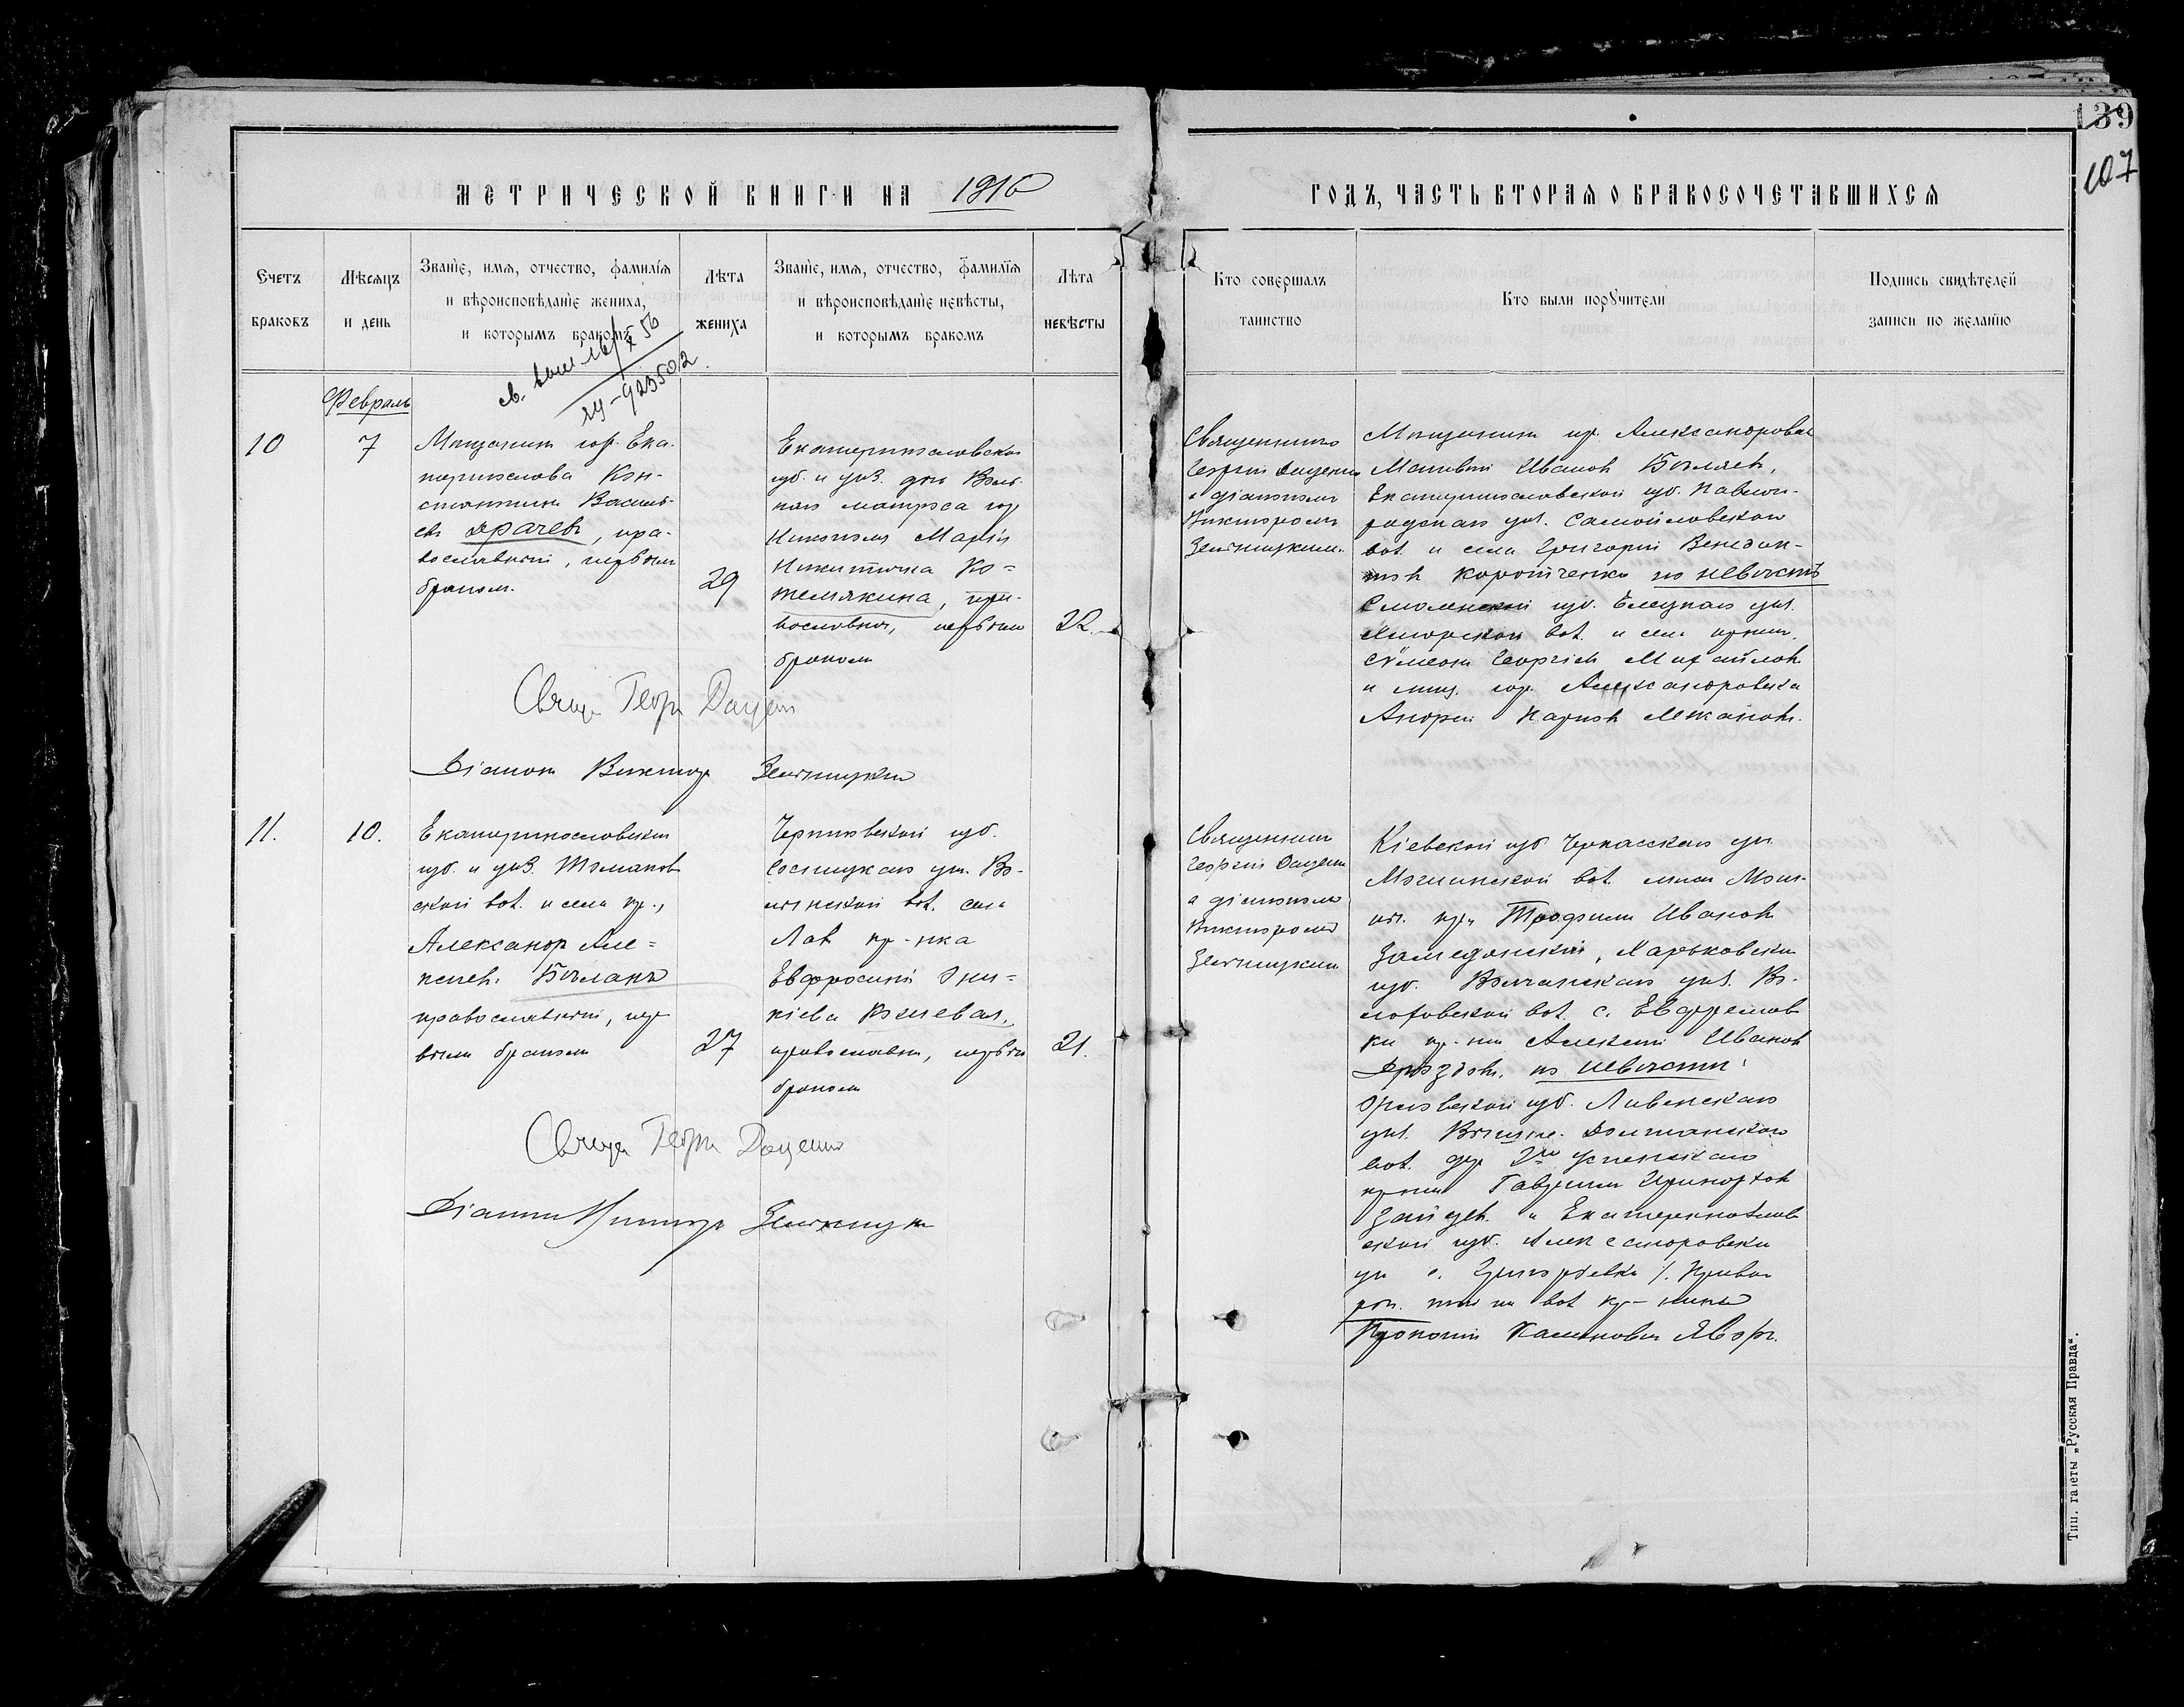 139
107
МЕТРИЧЕСКОЙ КНИГИ НА 1916
ГОДЪ, ЧАСТЬ ВТОРАЯ О БРАКОСОЧЕТАВШИХСЯ
Счетъ
браковъ
Мѣсяцъ
и день
Званіе, имя, отчество, фамилія
и вѣроисповѣданіе жениха,
и которымъ бракомъ
Лѣта
жениха
Званіе, имя, отчество, фамилія
и вѣроисповѣданіе невѣсты,
и которымъ бракомъ
Лѣта
невѣсты
Кто совершалъ
таинство
Кто были поручители
Подпись свидѣтелей
записи по желанію
св. 56
923502
Февраль
10
7
Мѣщанинъ гор. Ека-
теринослава Кон-
стантинъ Василь-
евъ Драчевъ, пра-
вославный, первымъ
бракомъ.
29
Екатеринославской
губ. и уѣз. дочь
матроса гор
Никополя Марія
Никитична Ко=
жемякина, пра-
вославная, первымъ
бракомъ
22.
Священникъ
Георгій Даценко
и діаконъ
Викторъ
Мѣщанинъ гор. Александровска
Матвѣй Ивановъ Бѣляевъ,
Екатеринославской губ. Павлог-
радскаго уѣз. Самойловской
вол. и села Григорій Венедик-
товъ Коротченко по невѣстѣ
Смоленской губ. уѣз.
вол. и села крест.
Сѵмеонъ Георгіевъ Михайловъ
и мѣщ. гор. Александровска
Андрей Карповъ
Свящ. Георг Даценко
Діаконъ Викторъ
11.
10.
Екатеринославской
губ. и уѣз. Томаков
ской вол. и села кр.,
Александръ Але=
ксеев. Бѣланъ
православный, пер
вымъ бракомъ
27
Черниговской губ.
Сосницкаго уѣз. Во-
лынской вол. села
Лавъ кр-нка
Евфросинія
православн, первым
бракомъ
21.
Священникъ
Георгій Даценко
и діаконъ
Викторъ
Кіевской губ Черкасскаго уѣз
вол.
кр. Трофимъ Ивановъ
Харьковской
губ. Волчанскаго уѣз. Во-
лоховской вол. с. Ефремов
ки кр-нин Алексѣй Ивановъ
Дроздовъ. по невѣстѣ:
Орловской губ. Ливенскаго
уѣз.
вол. дер 2го Успенскаго
крест Гавріилъ
Зайцев. и Екатеринослав
ской губ. Александровски
уѣз с.
вол кр-нинъ
Прокопій
Свящ Георг Даценко
Діаконъ
Тип. газеты „Русская Правда“.